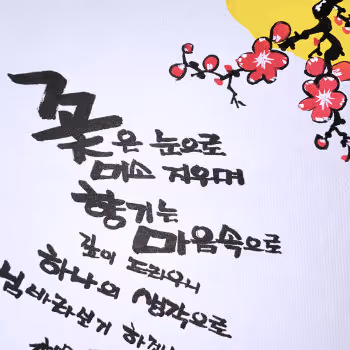 꽃은 눈으로
미소 지우며
향기는
마음속으로
깊이 드리우니
하나의 생각으로
님 바라보기 하게